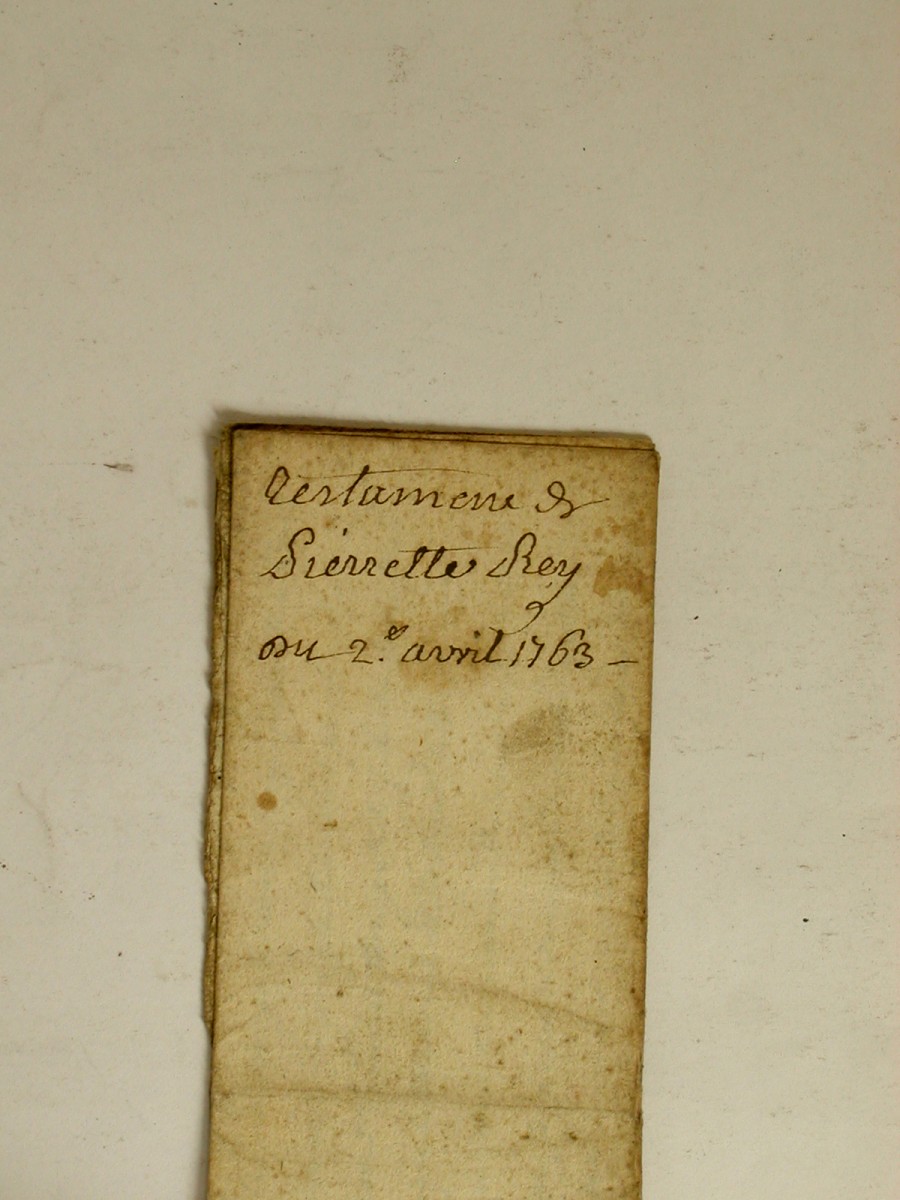 Testament de
Pierrette Rey
Du 2.e avril 1763 –